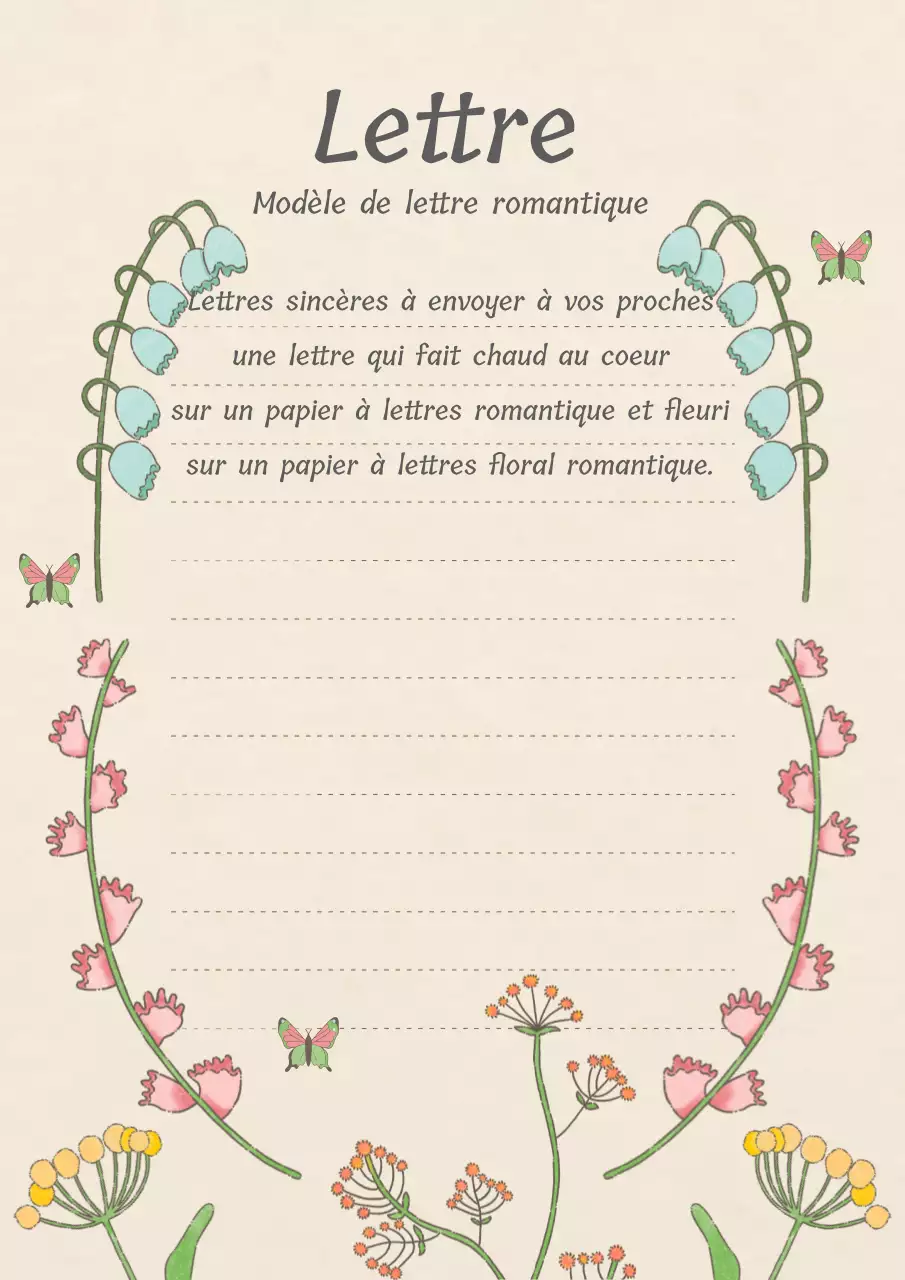 Lettre
Modèle de lettre romantique
Lettres sincères à envoyer à vos proches
une lettre qui fait chaud au coeur
sur un papier à lettres romantique et fleuri
sur un papier à lettres floral romantique.